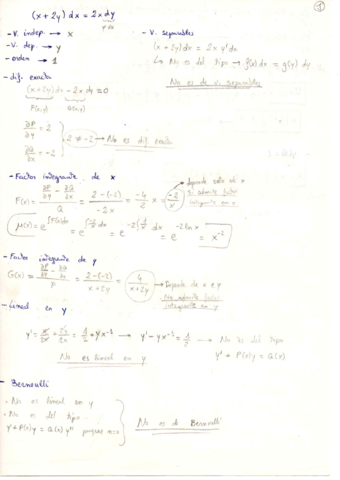 1
(x+2y) dx = 2x dy
y'dx
- V. indep. → x
- V. dep. → y
- orden → 1
- dif. exacta
(x+2y)dx - 2x dy = 0
P(x,y) Q(x,y)
∂P/∂y = 2
∂Q/∂x = -2
2 ≠ -2 → No es dif. exacta
- V. separables
(x+2y)dx = 2x y'dx
↳ No es del tipo → f(x)dx = g(y) dy
No es de v. separables
- Factor integrante de x
F(x) = (∂P/∂y - ∂Q/∂x)/Q = (2-(-2))/(-2x) = -4/2 x = -2/x → depende solo de x
Si admite factor integrante en x
μ(x) = e^∫F(x)dx = e^∫-2/x dx = e^-2∫1/x dx = e^-2 ln x = x^-2
- Factor integrante de y
G(x) = (∂P/∂y - ∂Q/∂x)/P = (2-(-2))/(x+2y) = 4/(x+2y) → Depende de x e y
No admite factor integrante en y
- Lineal en y
y' = x/2x + 2y/2x = 1/2 + yx^-1 → y' - yx^-1 = 1/2 → No es del tipo
y' + P(x)y = Q(x)
No es lineal en y
- Bernoulli
- No es lineal en y
- No es del tipo
y' + P(x)y = Q(x) y^n porque n=0
No es de Bernoulli